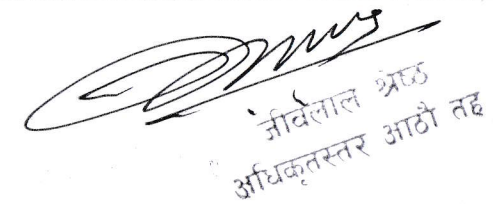 जीवेलाल श्रेष्ठ
अधिकृतस्तर आठौ तह